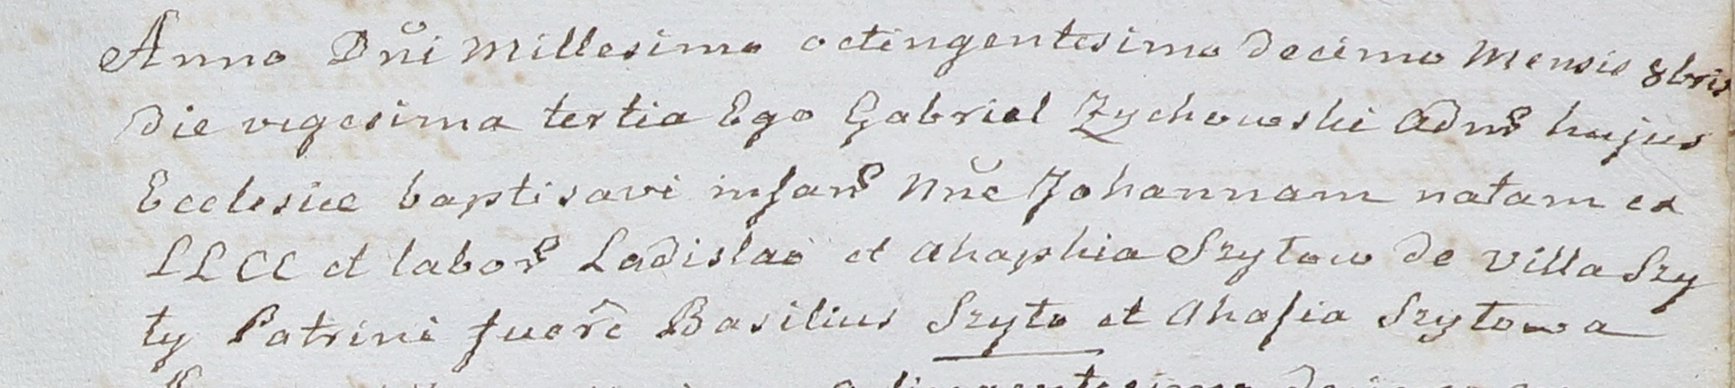 Anno Dñi Millesimo octingentesimo decimo Mensis 8bris
die vigesima tertia Ego Gabriel Zychowski Adms hujus
Ecclesiæ baptisavi infans Nñe Johannam natam ex
LLCC et labors Ladislao et Ahaphia Szytow de Villa Szy
ty Patrini fuerê Basilius Szyto et Ahafia Szytowa